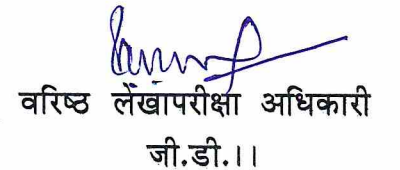 वरिष्ठ लेखापरीक्षा अधिकारी
जी.डी.।।